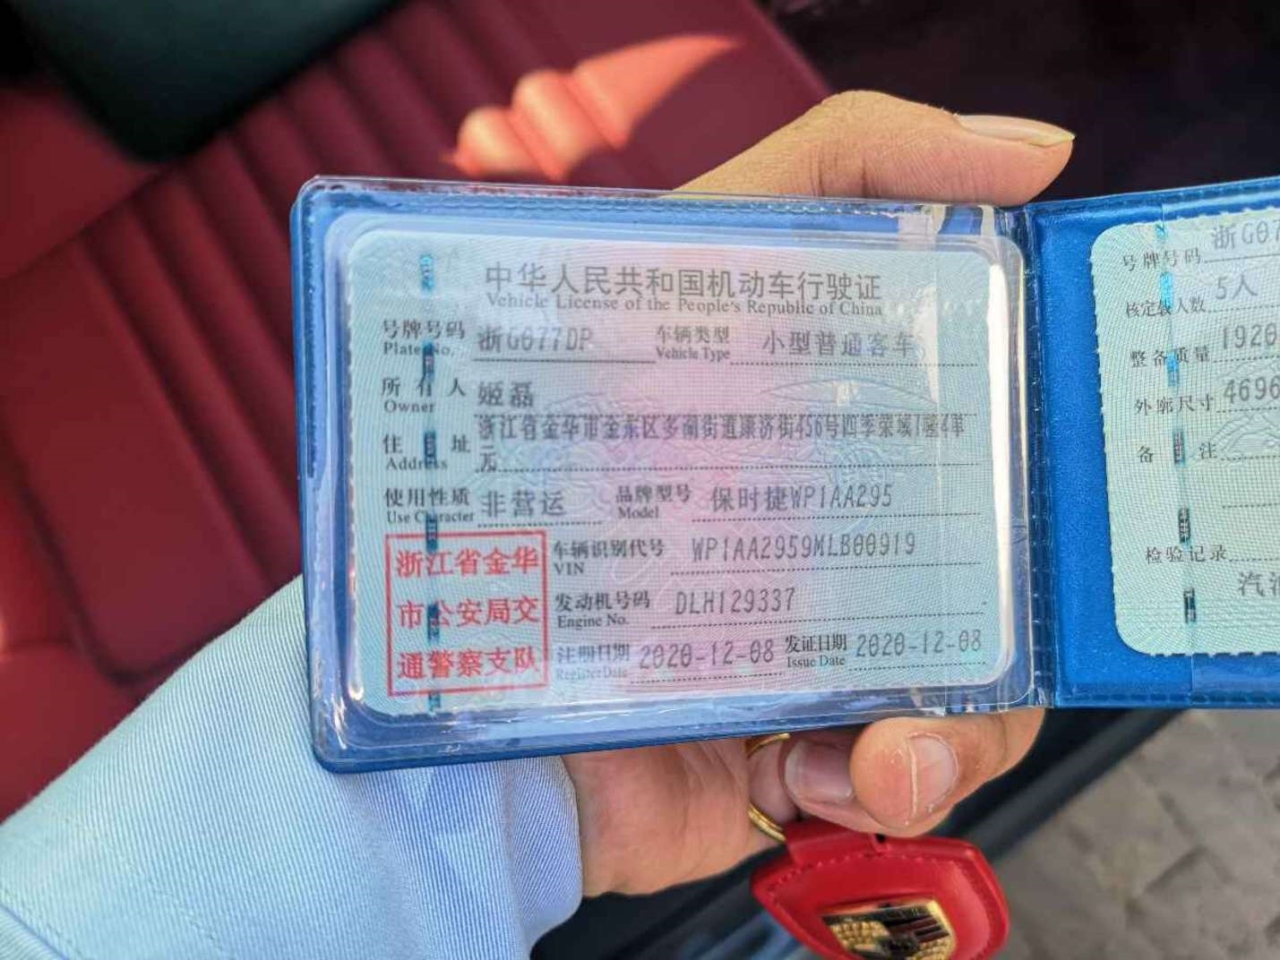 中华人民共和国机动车行驶证
Vehicle License of the People's Republic of China
号牌号码 浙G077DP 车辆类型 小型普通客车
Plate No. Vehicle Type
所有人 姬磊
Owner
住址 浙江省金华市金东区多湖街道康济街456号四季荣域1幢4单
Address 元
使用性质 非营运 品牌型号 保时捷WP1AA295
Use Character Model
浙江省金华
市公安局交
通警察支队
车辆识别代号 WP1AA2959MLB00919
VIN
发动机号码 DLH129337
Engine No.
注册日期 2020-12-08 发证日期 2020-12-08
Register Date Issue Date
号牌号码 浙G07
核定载人数 5人
整备质量 1920
外廓尺寸 4696
备注
检验记录
汽油